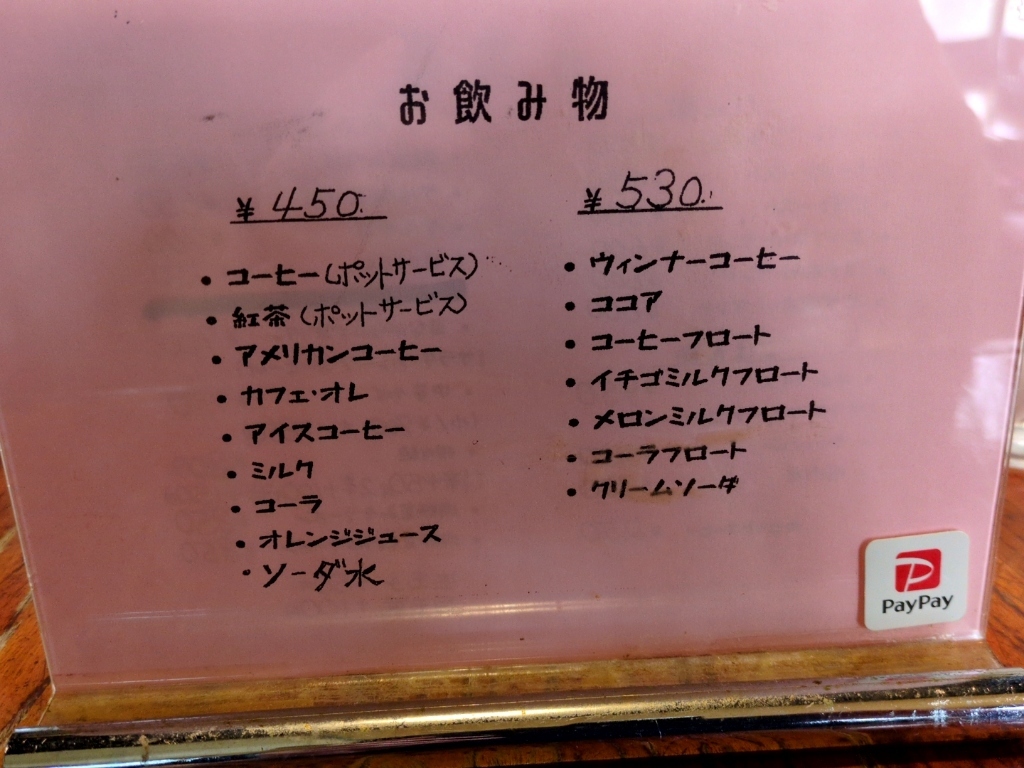 お飲み物
¥450.
・コーヒー(ポットサービス)
・紅茶(ポットサービス)
・アメリカンコーヒー
・カフェ・オレ
・アイスコーヒー
・ミルク
・コーラ
・オレンジジュース
・ソーダ水
¥530.
・ウィンナーコーヒー
・ココア
・コーヒーフロート
・イチゴミルクフロート
・メロンミルクフロート
・コーラフロート
・クリームソーダ
PayPay